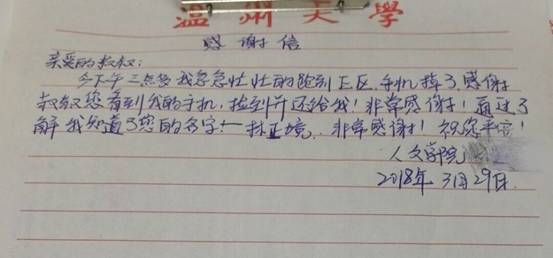 温州大学
感谢信
亲爱的叔叔:
今天下午三点多我急急忙忙的跑到E区,手机掉了,感谢
叔叔您看到我的手机,捡到并还给我!非常感谢!通过了
解我知道了您的名字!—林正境,非常感谢!祝您平信!
人文学院
2018年3月29日.